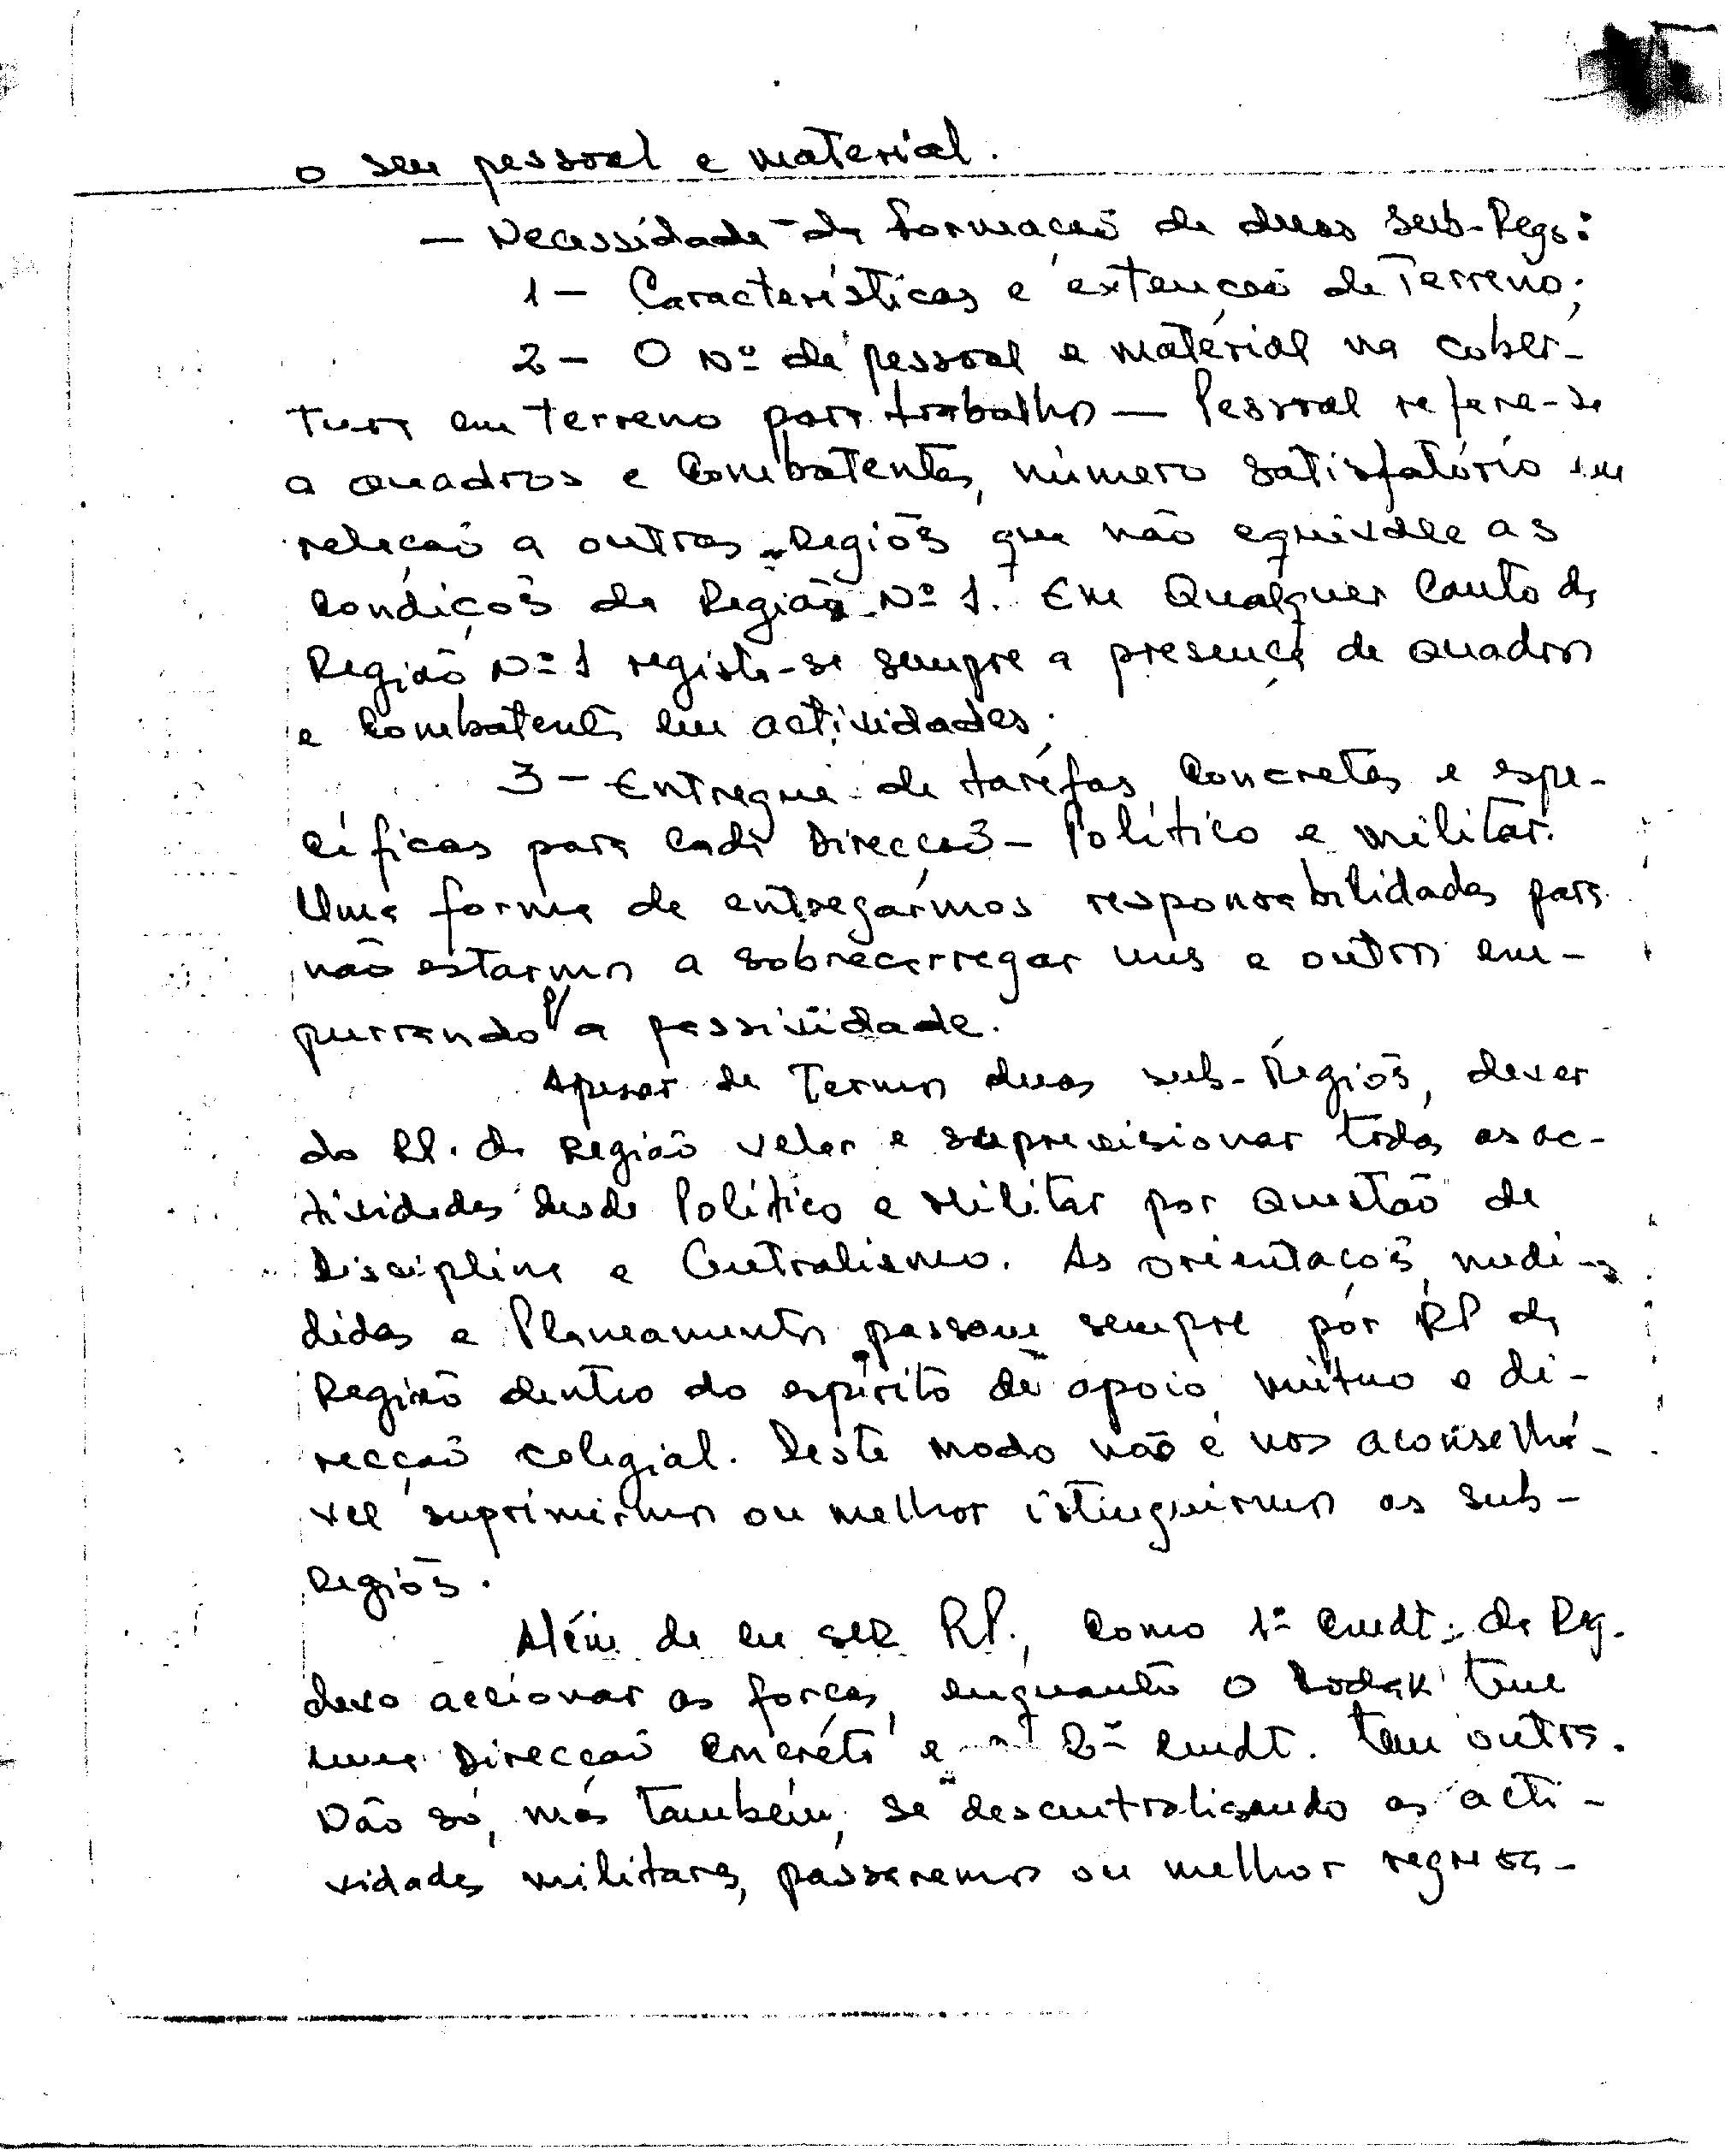 o seu pessoal e material.
— Necessidade da formação de duas Sub-Regs:
1 — Características e extenção de Terreno;
2 — O Nº de pessoal e matérial na cober-
tura em terreno para trabalho — Pessoal refere-se
a quadros e Combatentes, número satisfatório em
relação a outras Regiõs que não equivale as
Condiçõs da Região Nº 1. Em Qualquer Canto da
Região Nº 1 regista-se sempre a presença de quadros
e Combatents em actividades.
3 — Entregue de taréfas Concretas e espe-
cíficas para Cada Direcção — Político e Militar.
Uma forma de entregármos responsabilidades para
não estarmos a sobrecarregar uns e outros em-
purrando p/ a passividade.
Apesar de Termos duas sub-Regiõs, dever
do RP. da Região velar e suprevisionar todas as ac-
tividades desde Político e Militar por Questão de
Disciplina e Centralismo. As orientaçõs, medi-
didas e Planeamentos passam sempre por RP da
Região dentro do espírito de apoio mútuo e di-
recção colegial. Deste modo não é nos aconselhá-
vel suprimirmos ou melhor istinguirmos as sub-
Regiõs.
Além de eu ser RP., Como 1º Cmdt. da Reg.
devo accionar as forças, enquanto o Kodak tem
uma Direcção Concréta e 2º Cmdt. tem outra.
Não só, más também, se descentralisando as acti-
vidades militares, passaremos ou melhor regressa-